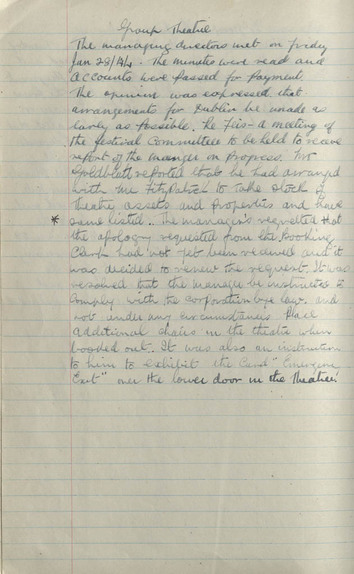 Group Theatre
The managing directors met on Friday
Jan 28/44. The minutes were read and
accounts were passed for payment.
The opinion was expressed that
arrangements for Dublin be made as
early as possible. Re Feis - a meeting of
the festival Committee to be held to receive
report of the manager on progress. Mr
Goldblatt reported that he had arranged
with Mr Fitzpatrick to take stock of
theatre assets and properties and have
* same listed. The managers reported that
the apology requested from the Booking
Clerk had not yet been received and it
was decided to renew the request. It was
resolved that the manager be instructed to
comply with the corporation bye law. and
not under any circumstances place
additional chairs in the theatre when
booked out. It was also an instruction
to him to exhibit the Card "Emergency
Exit" over the lower door in the Theatre.